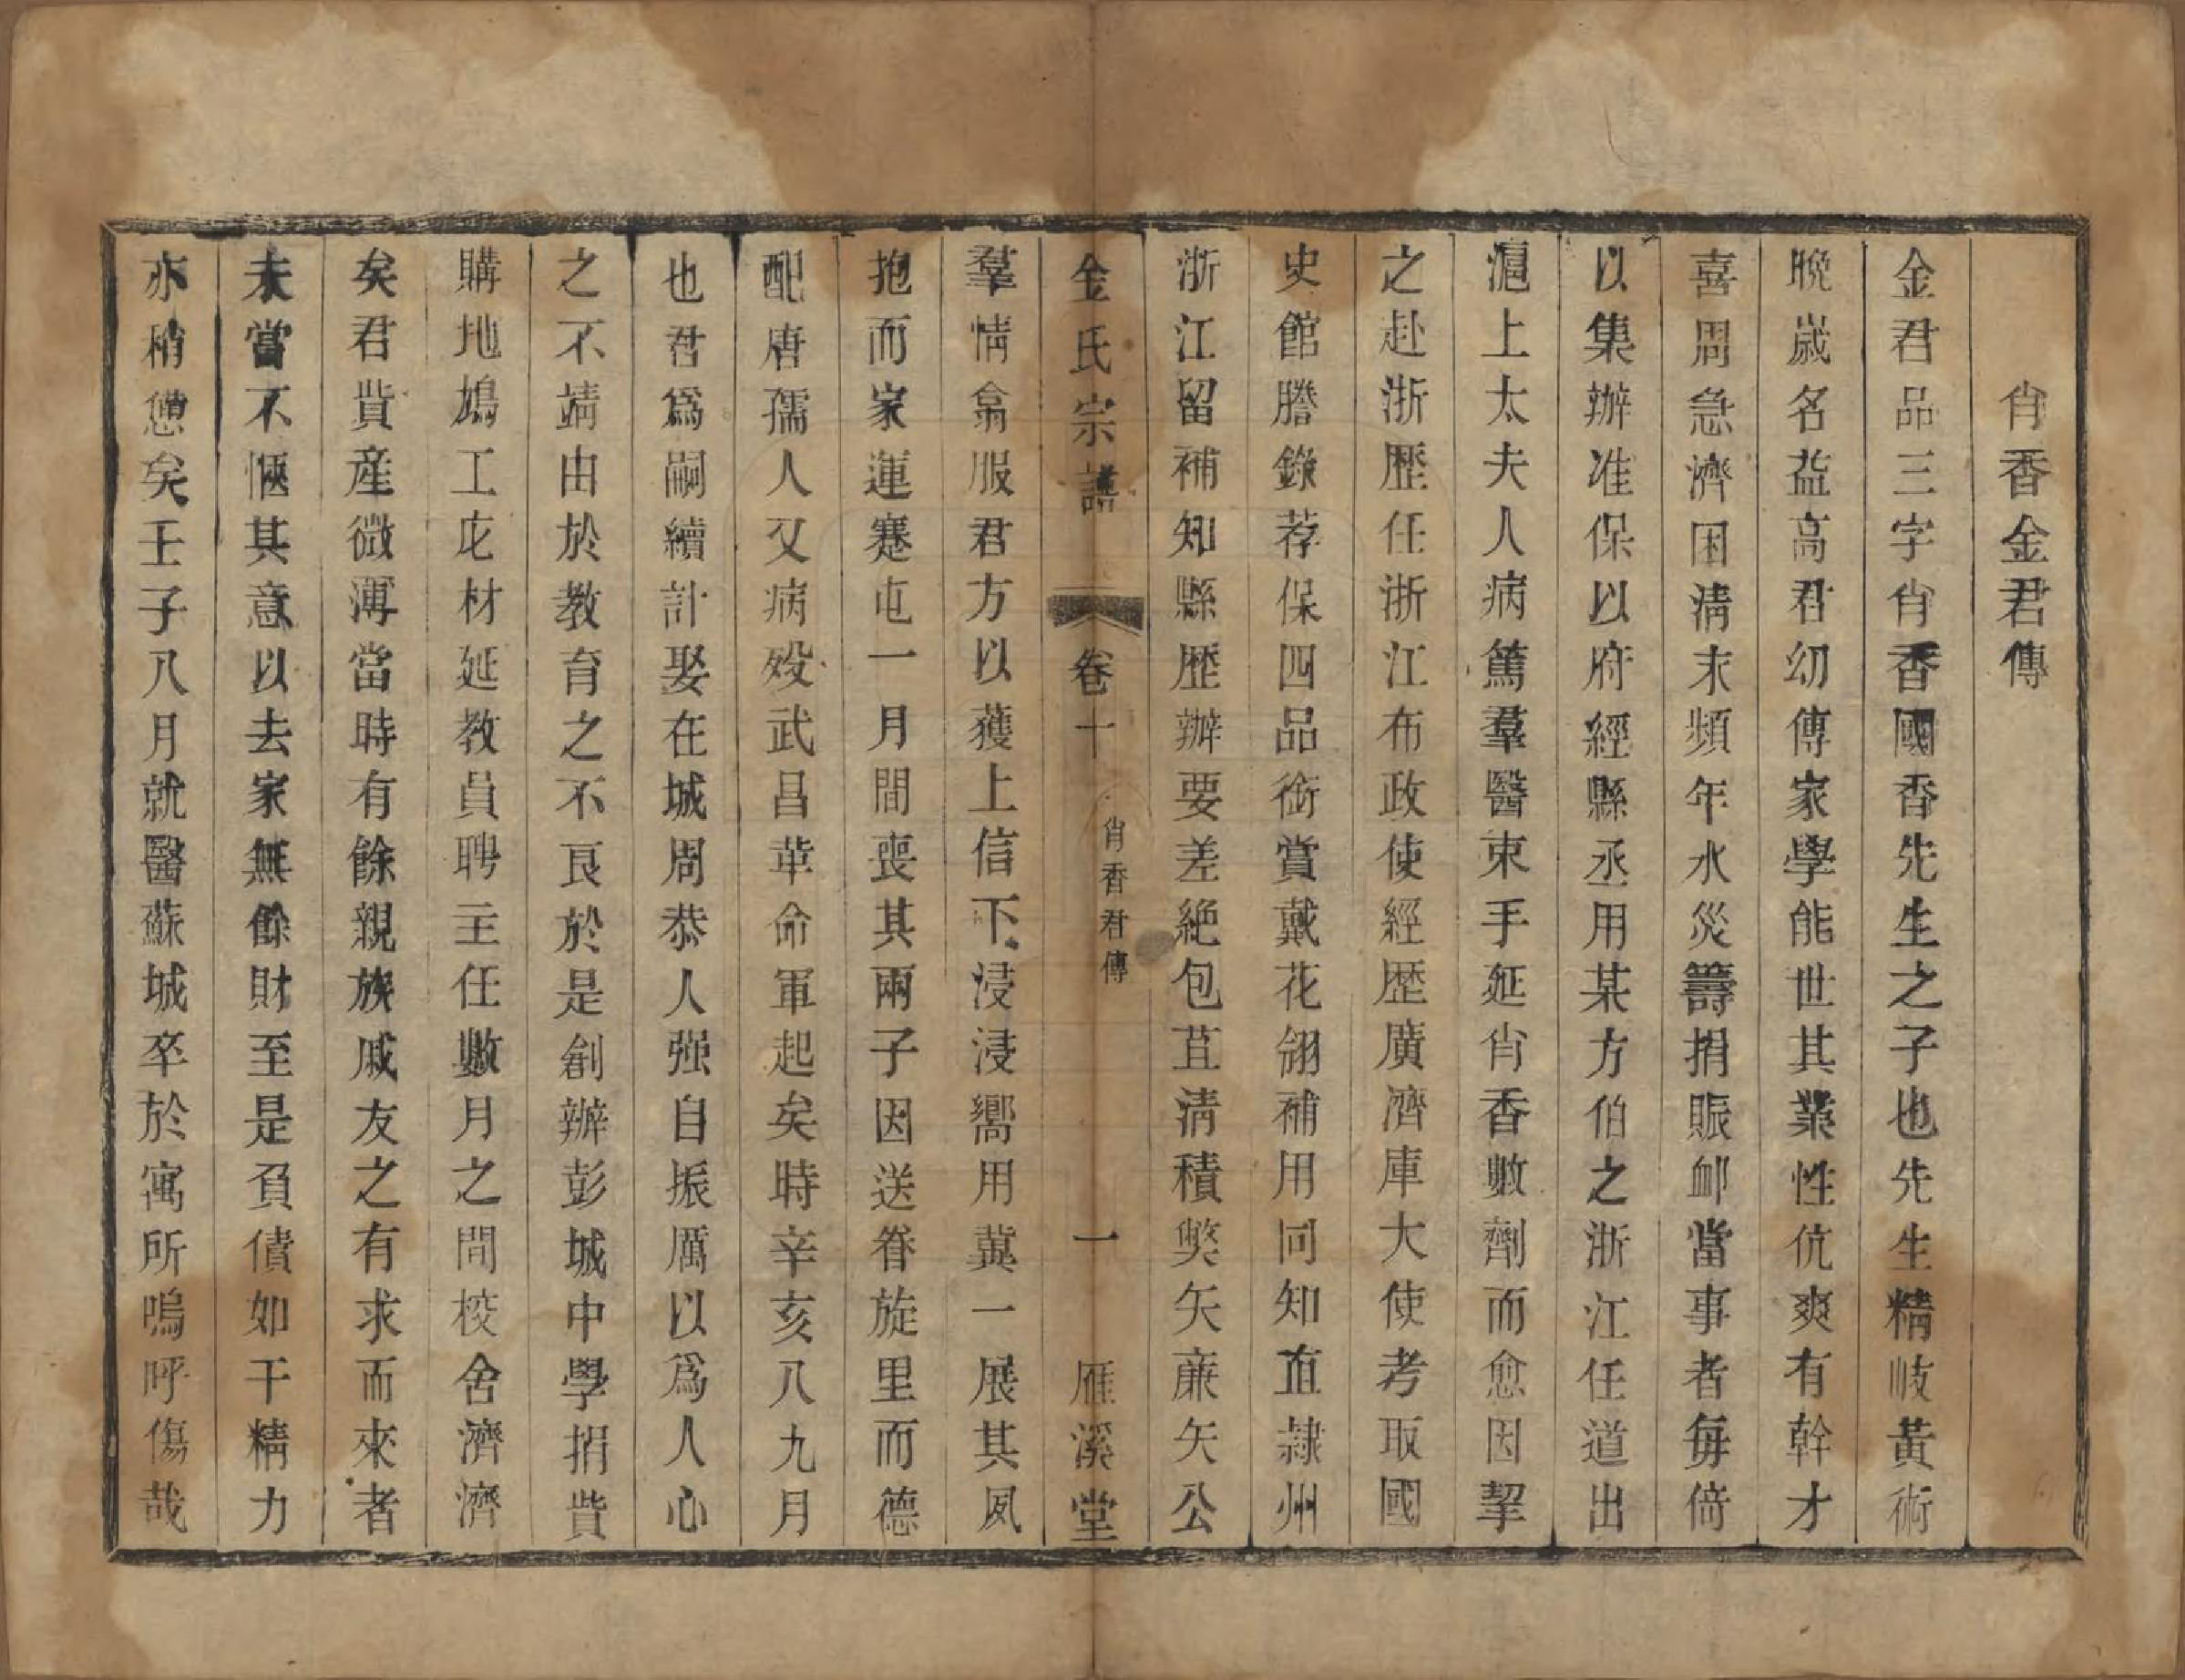 肖香金君傳
金君品三字肖香國香先生之子也先生精岐黃術
晚歲名益高君幼傳家學能世其業性伉爽有幹才
喜周急濟困清末頻年水災籌捐賑卹當事者每倚
以集辦准保以府經縣丞用某方伯之浙江任道出
滬上太夫人病篤羣醫束手延肖香數劑而愈因挈
之赴浙歷任浙江布政使經歷廣濟庫大使考取國
史館謄錄荐保四品銜賞戴花翎補用同知直隷州
浙江留補知縣歷辦要差絕包苴清積獘矢亷矢公
金氏宗譜 卷十 肖香君傳 一 雁溪堂
羣情翕服君方以獲上信下浸浸嚮用冀一展其夙
抱而家運蹇屯一月間喪其兩子因送眷旋里而德
配唐孺人又病殁武昌革命軍起矣時辛亥八九月
也君爲嗣續計娶在城周恭人强自振厲以爲人心
之不靖由於教育之不良於是創辦彭城中學捐貲
購地鳩工庀材延教員聘主任數月之間校舍濟濟
矣君貲産微薄當時有餘親族戚友之有求而來者
未嘗不愜其意以去家無餘財至是負債如干精力
亦稍憊矣壬子八月就醫蘇城卒於寓所嗚呼傷哉